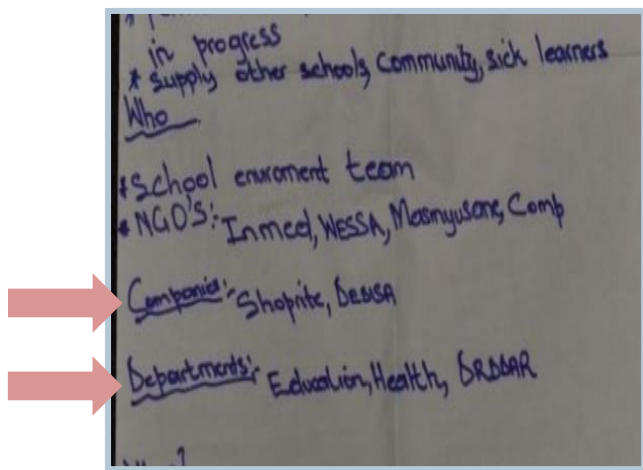 in progress
* supply other schools, community, sick learners
Who
*School enviroment team
*NGO'S:- Inmed, WESSA, Masinyusane, Comp
Companies:- Shoprite, 
Departments:- Education, Health, DRDAR